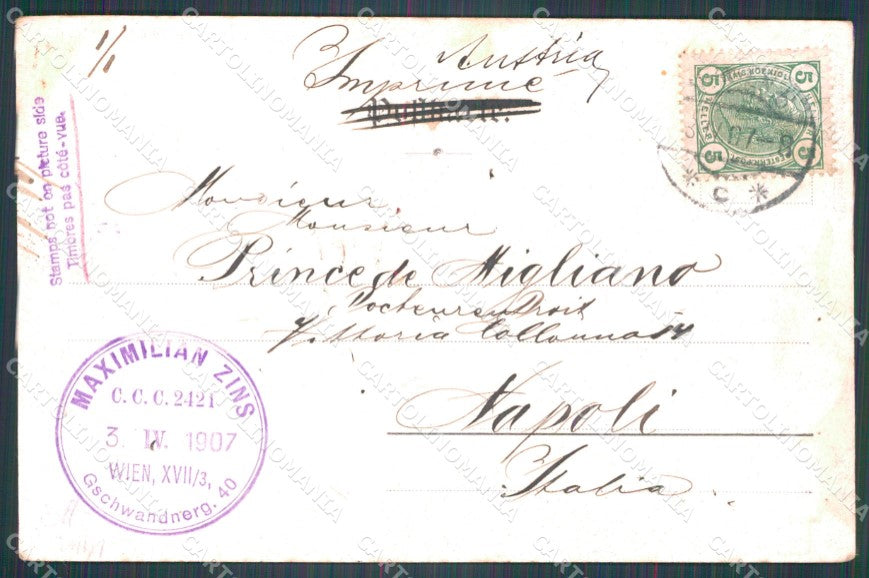 1/1
Austria
Imprimé
Postkarte.
Stamps not on picture side
Timbres pas côté-vue.
5 5
5 5
07
* C *
Monsieur
Monsieur
Prince de Migliano
Docteur en Droit
Vittoria Collonna 14
Napoli
Italia
MAXIMILIAN ZINS
C. C. C. 2421
3. IV. 1907
WIEN, XVII/3,
Gschwandnerg. 40
CARTOLINOMANIA